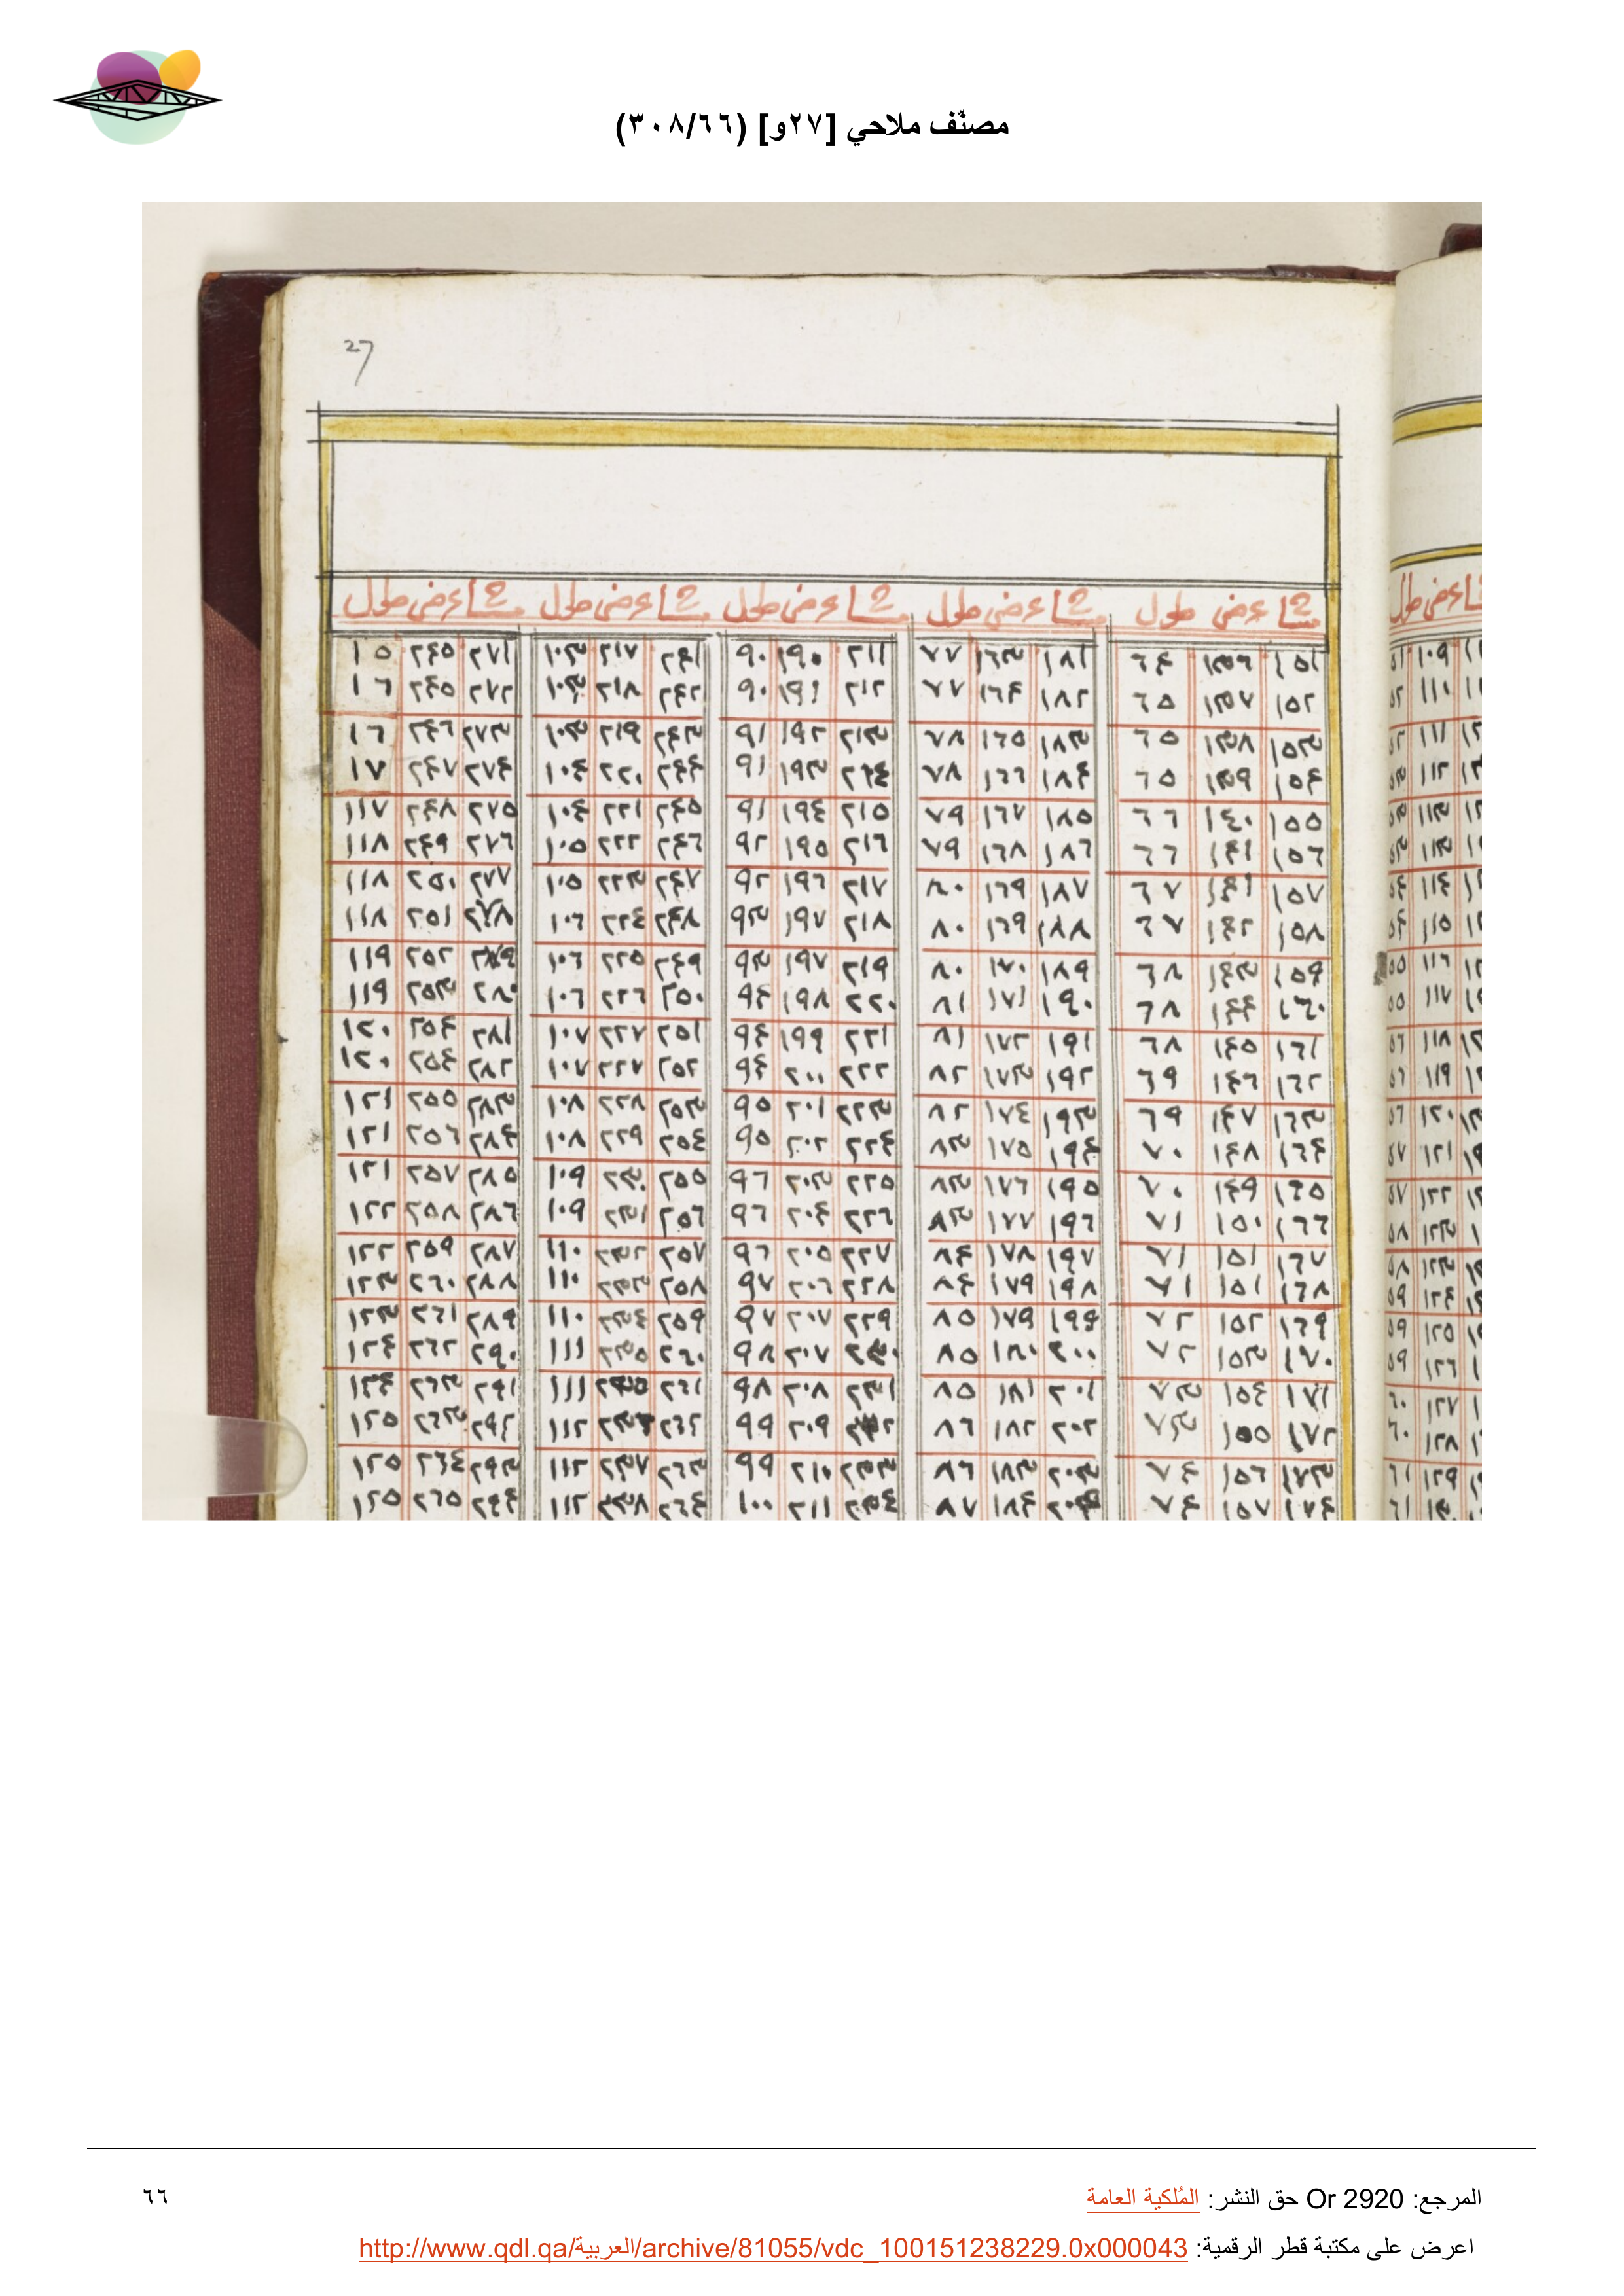 مصنّف ملاحي [٢٧و] (٣٠٨/٦٦)
27
شا عرض طول شا عرض طول شا عرض طول شا عرض طول شا عرض طول
١٥١ ١٣٦ ٦٤ ١٨١ ١٦٣ ٧٧ ٢١١ ١٩٠ ٩٠ ٢٤١ ٢١٧ ١٠٣ ٢٧١ ٢٤٥ ١٥
١٥٢ ١٣٧ ٦٥ ١٨٢ ١٦٤ ٧٧ ٢١٢ ١٩١ ٩٠ ٢٤٢ ٢١٨ ١٠٣ ٢٧٢ ٢٤٥ ١٦
١٥٣ ١٣٨ ٦٥ ١٨٣ ١٦٥ ٧٨ ٢١٣ ١٩٢ ٩١ ٢٤٣ ٢١٩ ١٠٣ ٢٧٣ ٢٤٦ ١٦
١٥٤ ١٣٩ ٦٥ ١٨٤ ١٦٦ ٧٨ ٢١٤ ١٩٣ ٩١ ٢٤٤ ٢٢٠ ١٠٤ ٢٧٤ ٢٤٧ ١٧
١٥٥ ١٤٠ ٦٦ ١٨٥ ١٦٧ ٧٩ ٢١٥ ١٩٤ ٩١ ٢٤٥ ٢٢١ ١٠٤ ٢٧٥ ٢٤٨ ١١٧
١٥٦ ١٤١ ٦٦ ١٨٦ ١٦٨ ٧٩ ٢١٦ ١٩٥ ٩٢ ٢٤٦ ٢٢٢ ١٠٥ ٢٧٦ ٢٤٩ ١١٨
١٥٧ ١٤١ ٦٧ ١٨٧ ١٦٩ ٨٠ ٢١٧ ١٩٦ ٩٢ ٢٤٧ ٢٢٣ ١٠٥ ٢٧٧ ٢٥٠ ١١٨
١٥٨ ١٤٢ ٦٧ ١٨٨ ١٦٩ ٨٠ ٢١٨ ١٩٧ ٩٣ ٢٤٨ ٢٢٤ ١٠٦ ٢٧٨ ٢٥١ ١١٨
١٥٩ ١٤٣ ٦٨ ١٨٩ ١٧٠ ٨٠ ٢١٩ ١٩٧ ٩٣ ٢٤٩ ٢٢٥ ١٠٦ ٢٧٩ ٢٥٢ ١١٩
١٦٠ ١٤٤ ٦٨ ١٩٠ ١٧١ ٨١ ٢٢٠ ١٩٨ ٩٤ ٢٥٠ ٢٢٦ ١٠٦ ٢٨٠ ٢٥٣ ١١٩
١٦١ ١٤٥ ٦٨ ١٩١ ١٧٢ ٨١ ٢٢١ ١٩٩ ٩٤ ٢٥١ ٢٢٧ ١٠٧ ٢٨١ ٢٥٤ ١٢٠
١٦٢ ١٤٦ ٦٩ ١٩٢ ١٧٣ ٨٢ ٢٢٢ ٢٠٠ ٩٤ ٢٥٢ ٢٢٧ ١٠٧ ٢٨٢ ٢٥٤ ١٢٠
١٦٣ ١٤٧ ٦٩ ١٩٣ ١٧٤ ٨٢ ٢٢٣ ٢٠١ ٩٥ ٢٥٣ ٢٢٨ ١٠٨ ٢٨٣ ٢٥٥ ١٢١
١٦٤ ١٤٨ ٧٠ ١٩٤ ١٧٥ ٨٣ ٢٢٤ ٢٠٢ ٩٥ ٢٥٤ ٢٢٩ ١٠٨ ٢٨٤ ٢٥٦ ١٢١
١٦٥ ١٤٩ ٧٠ ١٩٥ ١٧٦ ٨٣ ٢٢٥ ٢٠٣ ٩٦ ٢٥٥ ٢٣٠ ١٠٩ ٢٨٥ ٢٥٧ ١٢١
١٦٦ ١٥٠ ٧١ ١٩٦ ١٧٧ ٨٣ ٢٢٦ ٢٠٤ ٩٦ ٢٥٦ ٢٣١ ١٠٩ ٢٨٦ ٢٥٨ ١٢٢
١٦٧ ١٥١ ٧١ ١٩٧ ١٧٨ ٨٤ ٢٢٧ ٢٠٥ ٩٦ ٢٥٧ ٢٣٢ ١١٠ ٢٨٧ ٢٥٩ ١٢٢
١٦٨ ١٥١ ٧١ ١٩٨ ١٧٩ ٨٤ ٢٢٨ ٢٠٦ ٩٧ ٢٥٨ ٢٣٣ ١١٠ ٢٨٨ ٢٦٠ ١٢٣
١٦٩ ١٥٢ ٧٢ ١٩٩ ١٧٩ ٨٥ ٢٢٩ ٢٠٧ ٩٧ ٢٥٩ ٢٣٤ ١١٠ ٢٨٩ ٢٦١ ١٢٣
١٧٠ ١٥٣ ٧٢ ٢٠٠ ١٨٠ ٨٥ ٢٣٠ ٢٠٧ ٩٨ ٢٦٠ ٢٣٥ ١١١ ٢٩٠ ٢٦٢ ١٢٤
١٧١ ١٥٤ ٧٣ ٢٠١ ١٨١ ٨٥ ٢٣١ ٢٠٨ ٩٨ ٢٦١ ٢٣٥ ١١١ ٢٩١ ٢٦٣ ١٢٤
١٧٢ ١٥٥ ٧٣ ٢٠٢ ١٨٢ ٨٦ ٢٣٢ ٢٠٩ ٩٩ ٢٦٢ ٢٣٦ ١١٢ ٢٩٢ ٢٦٣ ١٢٥
١٧٣ ١٥٦ ٧٤ ٢٠٣ ١٨٣ ٨٦ ٢٣٣ ٢١٠ ٩٩ ٢٦٣ ٢٣٧ ١١٢ ٢٩٣ ٢٦٤ ١٢٥
١٧٤ ١٥٧ ٧٤ ٢٠٤ ١٨٤ ٨٧ ٢٣٤ ٢١١ ١٠٠ ٢٦٤ ٢٣٨ ١١٢ ٢٩٤ ٢٦٥ ١٢٥
المرجع: Or 2920 حق النشر: المُلكية العامة
٦٦
اعرض على مكتبة قطر الرقمية: http://www.qdl.qa/العربية/archive/81055/vdc_100151238229.0x000043